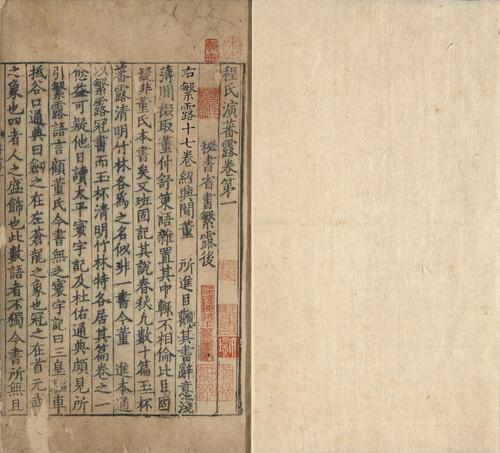 程氏演蕃露卷第一
秘書省書繁露後
右繁露十七卷紹興間董 所進目觀其書辭意淺
薄間掇取董仲舒策語雜置其中輒不相倫比目固
疑非董氏本書矣又班固記其說春秋凡數十篇玉杯
蕃露清明竹林各爲之名似非一書今董 進本通
以繁露冠書而玉杯清明竹林特各居其篇卷之一
愈益可疑他日讀太平寰宇記及杜佑通典頗見所
引繁露語言顧董氏今書無之寰宇記曰三皇 車
抵谷口通典曰劒之在左蒼龍之象也冠之在首元武
之象也四者人之盛飾也此數語者不獨今書所無且